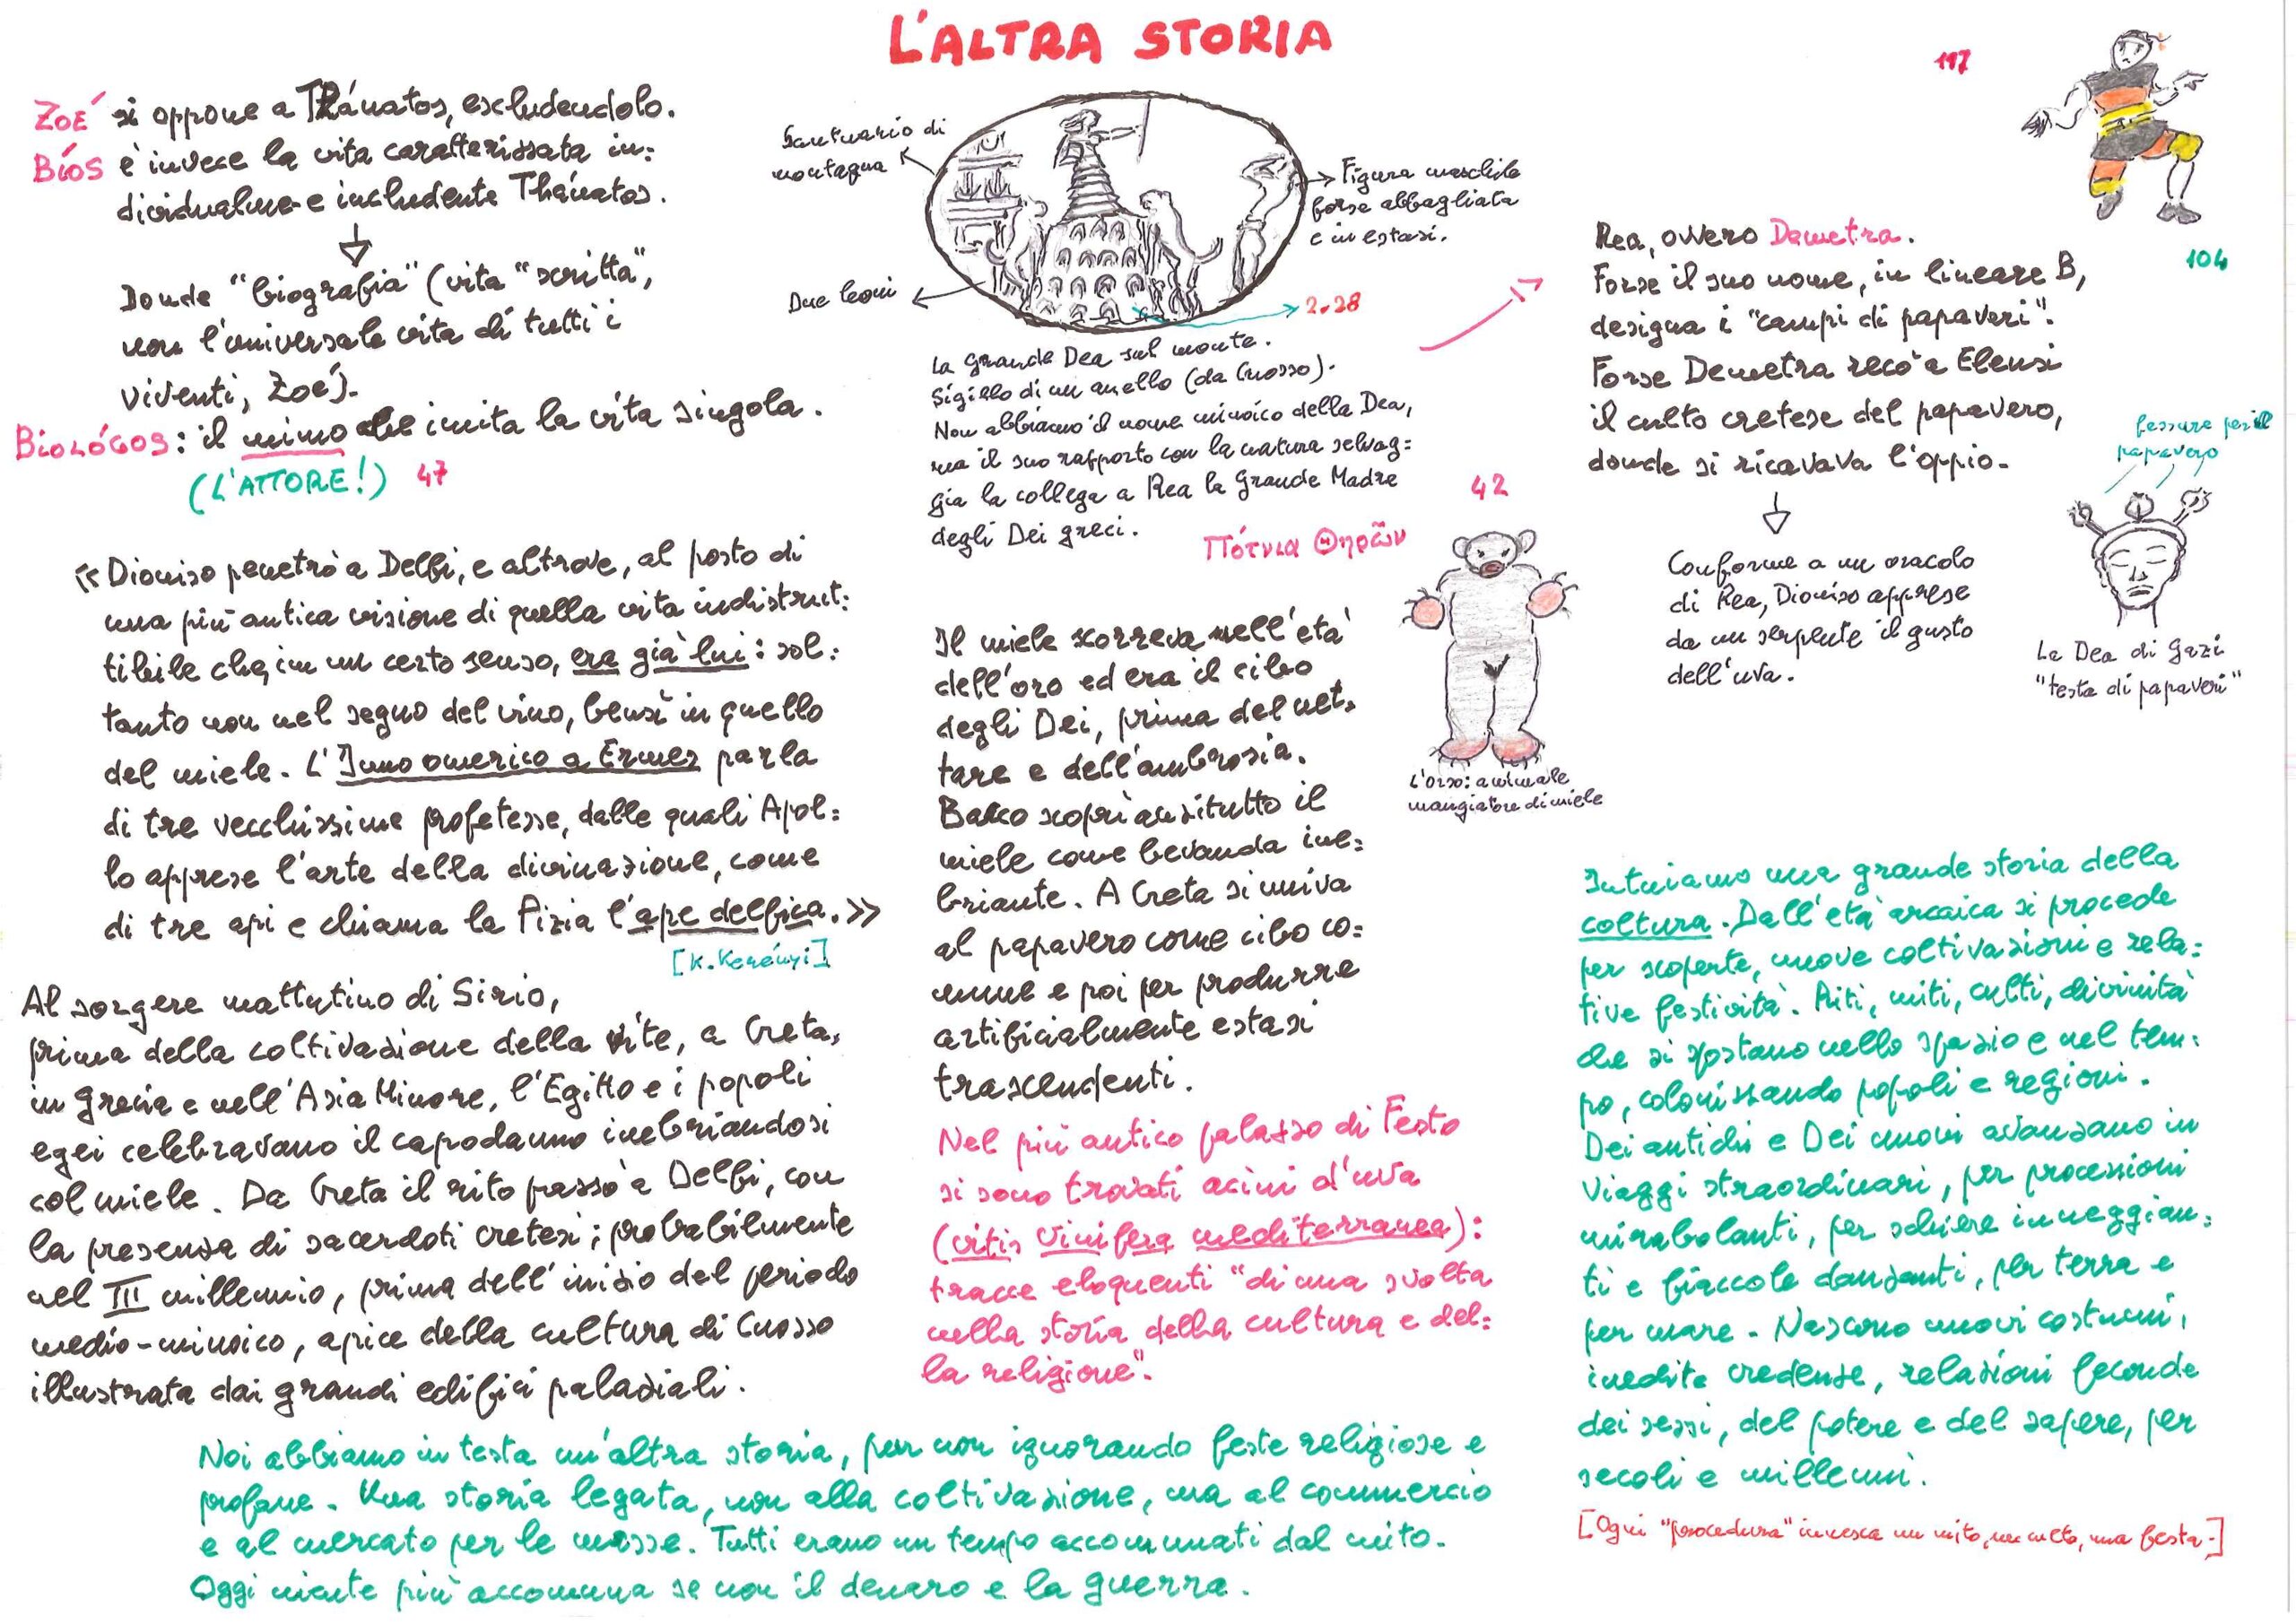 L'ALTRA STORIA
ZOÉ si oppone a Thánatos, escludendolo.
BÍOS è invece la vita caratterizzata in=
dividualme e includente Thánatos.
Donde "biografia" (vita "scritta",
non l'universale vita di tutti i
viventi, Zoé).
BIOLÓGOS: il mimo che imita la vita singola.
(L'ATTORE!) 47
«Dioniso penetrò a Delfi, e altrove, al posto di
una più antica visione di quella vita indistrut=
tibile che, in un certo senso, era già lui: sol=
tanto non nel segno del vino, bensì in quello
del miele. L'Inno omerico a Ermes parla
di tre vecchissime profetesse, dalle quali Apol=
lo apprese l'arte della divinazione, come
di tre api e chiama la Pizia l'ape delfica.»
[K. Kerényi]
Al sorgere mattutino di Sirio,
prima della coltivazione della vite, a Creta,
in Grecia e nell'Asia Minore, l'Egitto e i popoli
egei celebravano il capodanno inebriandosi
col miele. Da Creta il rito passò a Delfi, con
la presenza di sacerdoti cretesi; probabilmente
nel III millennio, prima dell'inizio del periodo
medio-minoico, apice della cultura di Cnosso
illustrata dai grandi edifici palaziali.
Santuario di
montagna
Due leoni
Figura maschile
forse abbagliata
e in estasi.
2.28
La Grande Dea sul monte.
Sigillo di un anello (da Cnosso).
Non abbiamo il nome minoico della Dea,
ma il suo rapporto con la natura selvag=
gia la collega a Rea la Grande Madre
degli Dei greci.
Πότνια Θηρῶν
42
Il miele scorreva nell'età
dell'oro ed era il cibo
degli Dei, prima del net=
tare e dell'ambrosia.
Bacco scoprì anzitutto il
miele come bevanda ine=
briante. A Creta si univa
al papavero come cibo co=
mune e poi per produrre
artificialmente estasi
trascendenti.
L'orso: animale
mangiatore di miele
Nel più antico palazzo di Festo
si sono trovati acini d'uva
(vitis vinifera mediterranea):
tracce eloquenti "di una svolta
nella storia della cultura e del=
la religione".
117
Rea, ovvero Demetra.
Forse il suo nome, in lineare B,
designa i "campi di papaveri".
Forse Demetra recò a Eleusi
il culto cretese del papavero,
donde si ricavava l'oppio.
104
Conforme a un oracolo
di Rea, Dioniso apprese
da un serpente il gusto
dell'uva.
fessure per il
papavero
La Dea di Gazi
"testa di papaveri"
Intuiamo una grande storia della
coltura. Dall'età arcaica si procede
per scoperte, nuove coltivazioni e rela=
tive festività. Riti, miti, culti, divinità
che si spostano nello spazio e nel tem=
po, colonizzando popoli e regioni.
Dei antichi e Dei nuovi avanzano in
viaggi straordinari, per processioni
mirabolanti, per schiere inneggian=
ti e fiaccole danzanti, per terra e
per mare. Nascono nuovi costumi,
inedite credenze, relazioni feconde
dei sessi, del potere e del sapere, per
secoli e millenni.
[Ogni "procedura" innesca un mito, un culto, una festa.]
Noi abbiamo in testa un'altra storia, pur non ignorando feste religiose e
profane. Una storia legata, non alla coltivazione, ma al commercio
e al mercato per le masse. Tutti erano un tempo accomunati dal mito.
Oggi niente più accomuna se non il denaro e la guerra.